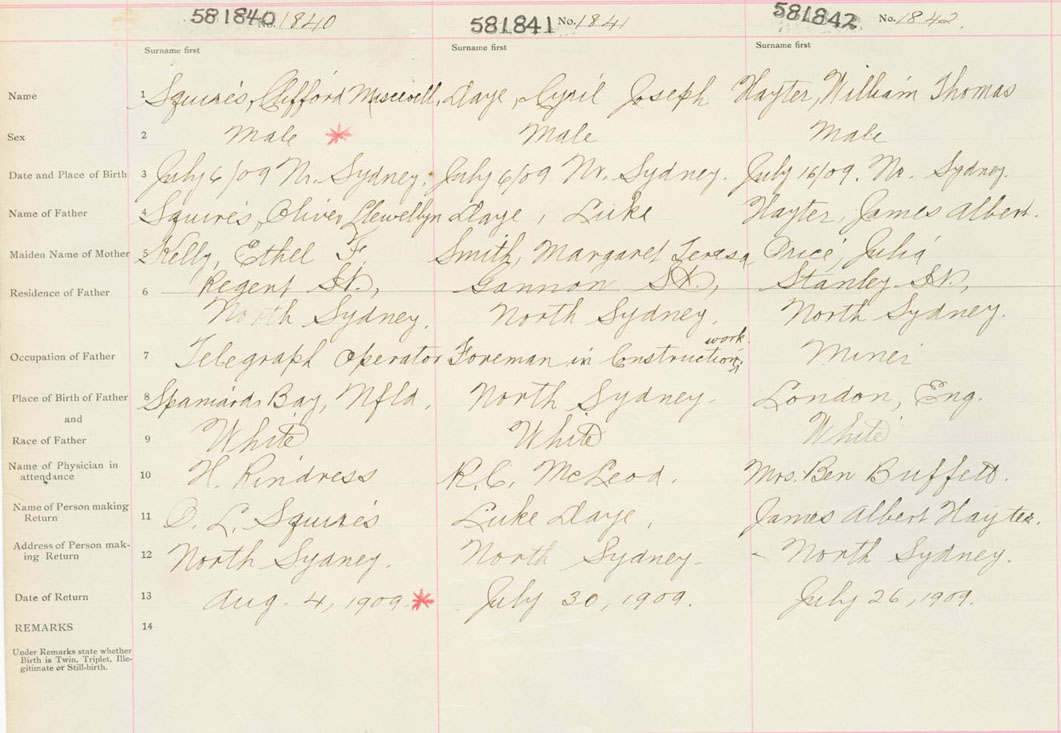 581840 No. 1840 581841 No. 1841 581842 No. 1842
Surname first Surname first Surname first
Name 1 Squires, Clifford Daye, Cyril Joseph Hayter, William Thomas
Sex 2 Male Male Male
Date and Place of Birth 3 July 6/09 Nr. Sydney. July 6/09 Nr. Sydney. July 16/09. Nr. Sydney.
Name of Father 4 Squires, Oliver Llewellyn Daye, Luke Hayter, James Albert.
Maiden Name of Mother 5 Kelly, Ethel F. Smith, Margaret Teresa Price, Julia
Residence of Father 6 Regent St., Gannon St., Stanley St.,
North Sydney. North Sydney. North Sydney.
work
Occupation of Father 7 Telegraph Operator Foreman in Construction Miner
Place of Birth of Father 8 Spaniards Bay, Nfld. North Sydney. London, Eng.
and
Race of Father 9 White White White
Name of Physician in
attendance 10 H. Rindress R.C. McLeod. Mrs. Ben Buffett.
Name of Person making
Return 11 O. L. Squires Luke Daye, James Albert Hayter.
Address of Person mak-
ing Return 12 North Sydney. North Sydney. North Sydney.
Date of Return 13 Aug. 4, 1909. July 30, 1909. July 26, 1909.
REMARKS 14
Under Remarks state whether
Birth is Twin, Triplet, Ille-
gitimate or Still-birth.